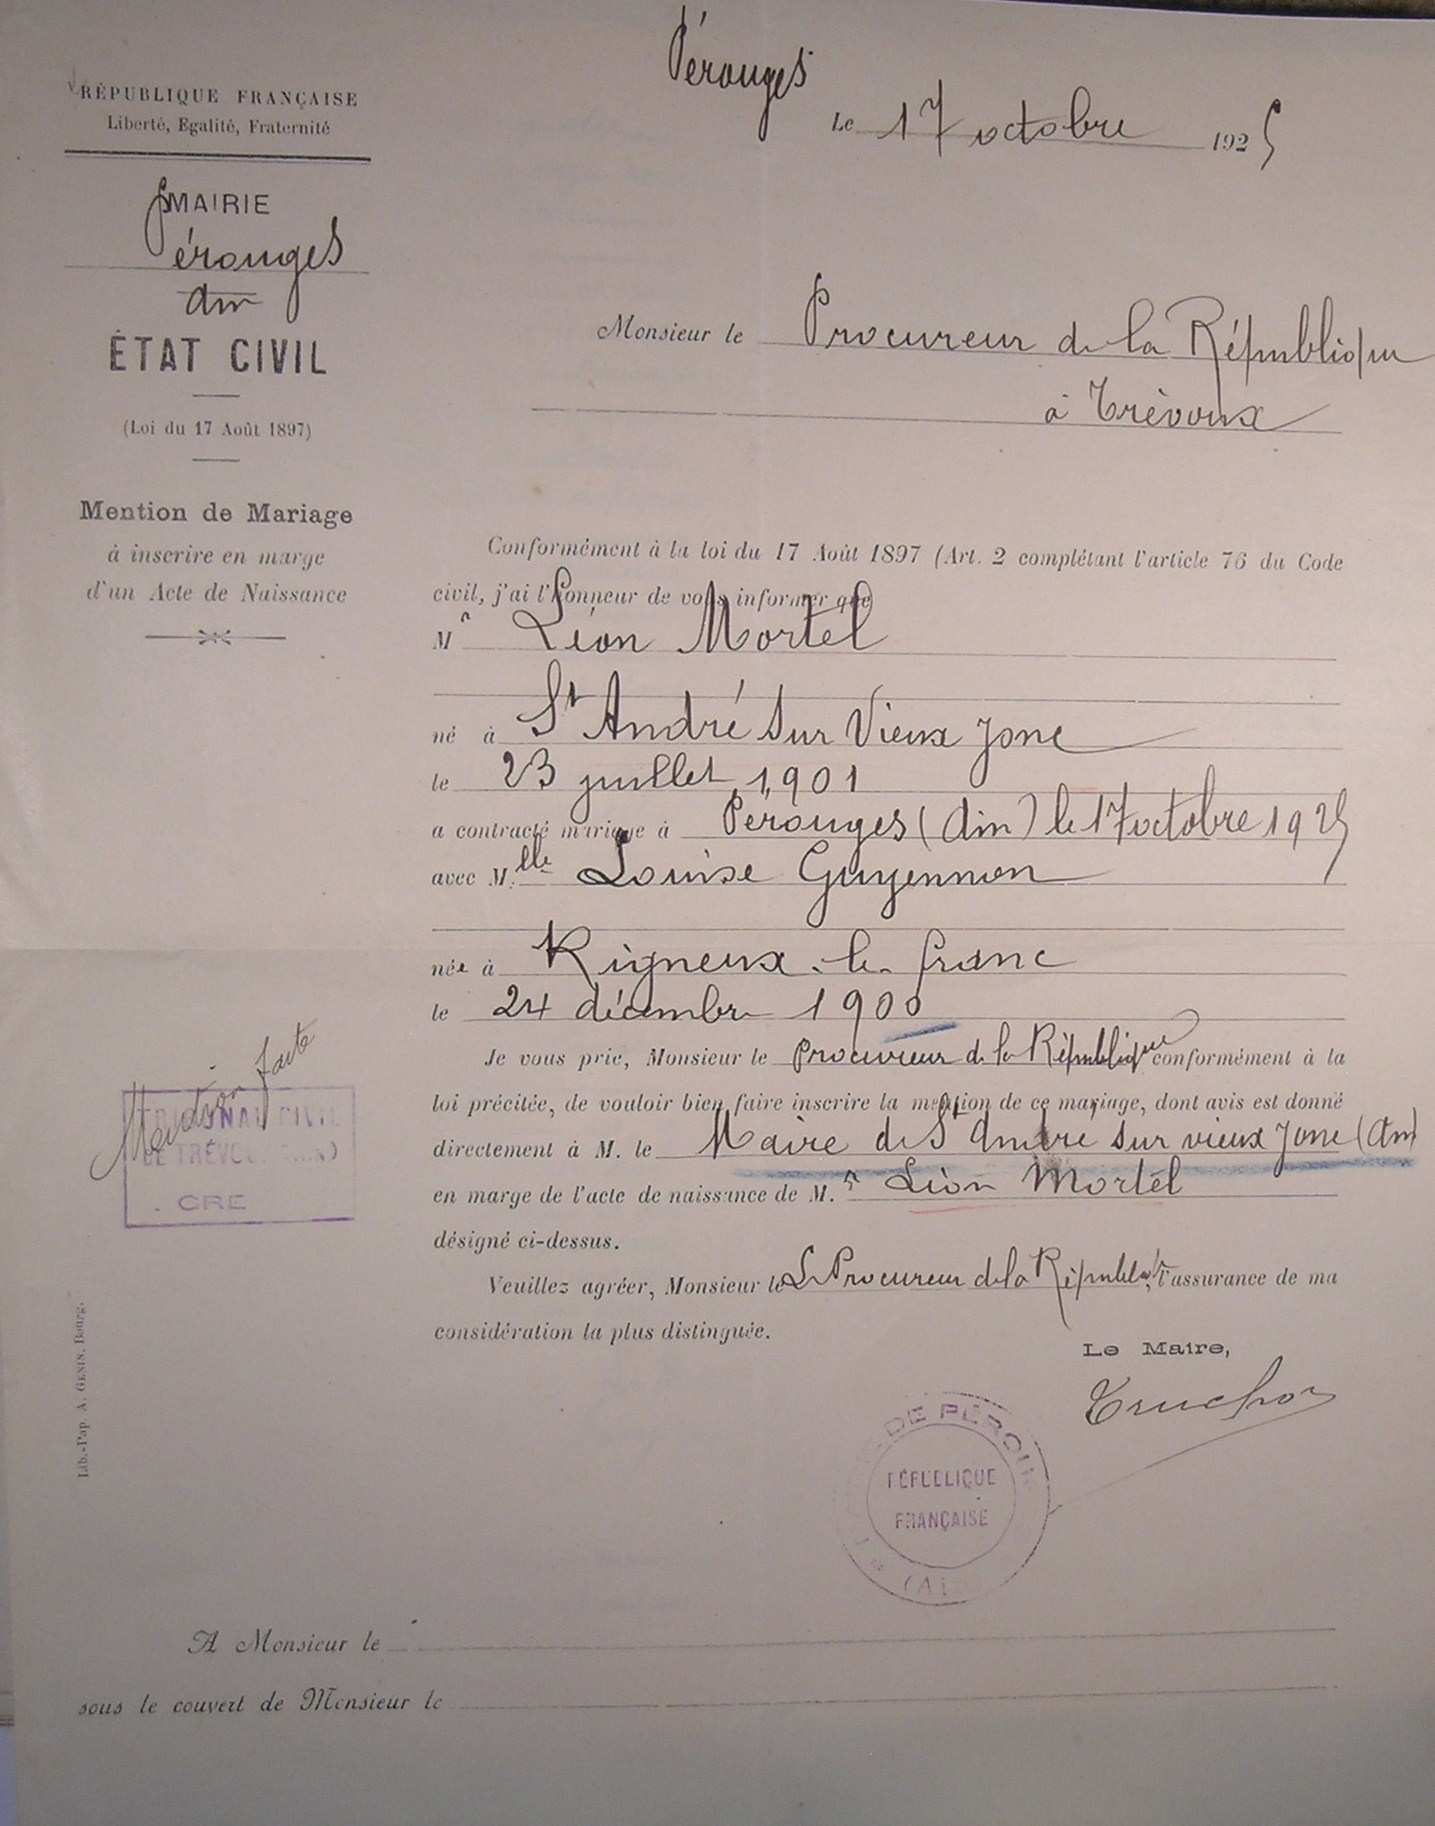 Pérouges
Le 17 octobre 1925
RÉPUBLIQUE FRANÇAISE
Liberté, Egalité, Fraternité
MAIRIE
Pérouges
Ain
ÉTAT CIVIL
(Loi du 17 Août 1897)
Mention de Mariage
à inscrire en marge
d'un Acte de Naissance
Monsieur le Procureur de la République
à Trévoux
Conformément à la loi du 17 Août 1897 (Art. 2 complétant l'article 76 du Code
civil, j'ai l'honneur de vous informer que
Mr Léon Mortel
né à St André sur Vieux Jonc
le 23 juillet 1901
a contracté mariage à Pérouges (Ain) le 17 octobre 1925
avec M.elle Louise Guyennon
née à Rigneux-le-franc
le 24 décembre 1900
Je vous prie, Monsieur le Procureur de la République conformément à la
loi précitée, de vouloir bien faire inscrire la mention de ce mariage, dont avis est donné
directement à M. le Maire de St André sur vieux Jonc (Ain)
en marge de l'acte de naissance de M.r Léon Mortel
désigné ci-dessus.
Veuillez agréer, Monsieur le Procureur de la République, l'assurance de ma
considération la plus distinguée.
Le Maire,
Mention faite
TRIBUNAL CIVIL
DE TRÉVOUX (AIN)
Lib.-Pap A. GENIN. Bourg.
DE PÉROUGES
RÉPUBLIQUE
FRANÇAISE
(Ain)
A Monsieur le
sous le couvert de Monsieur le